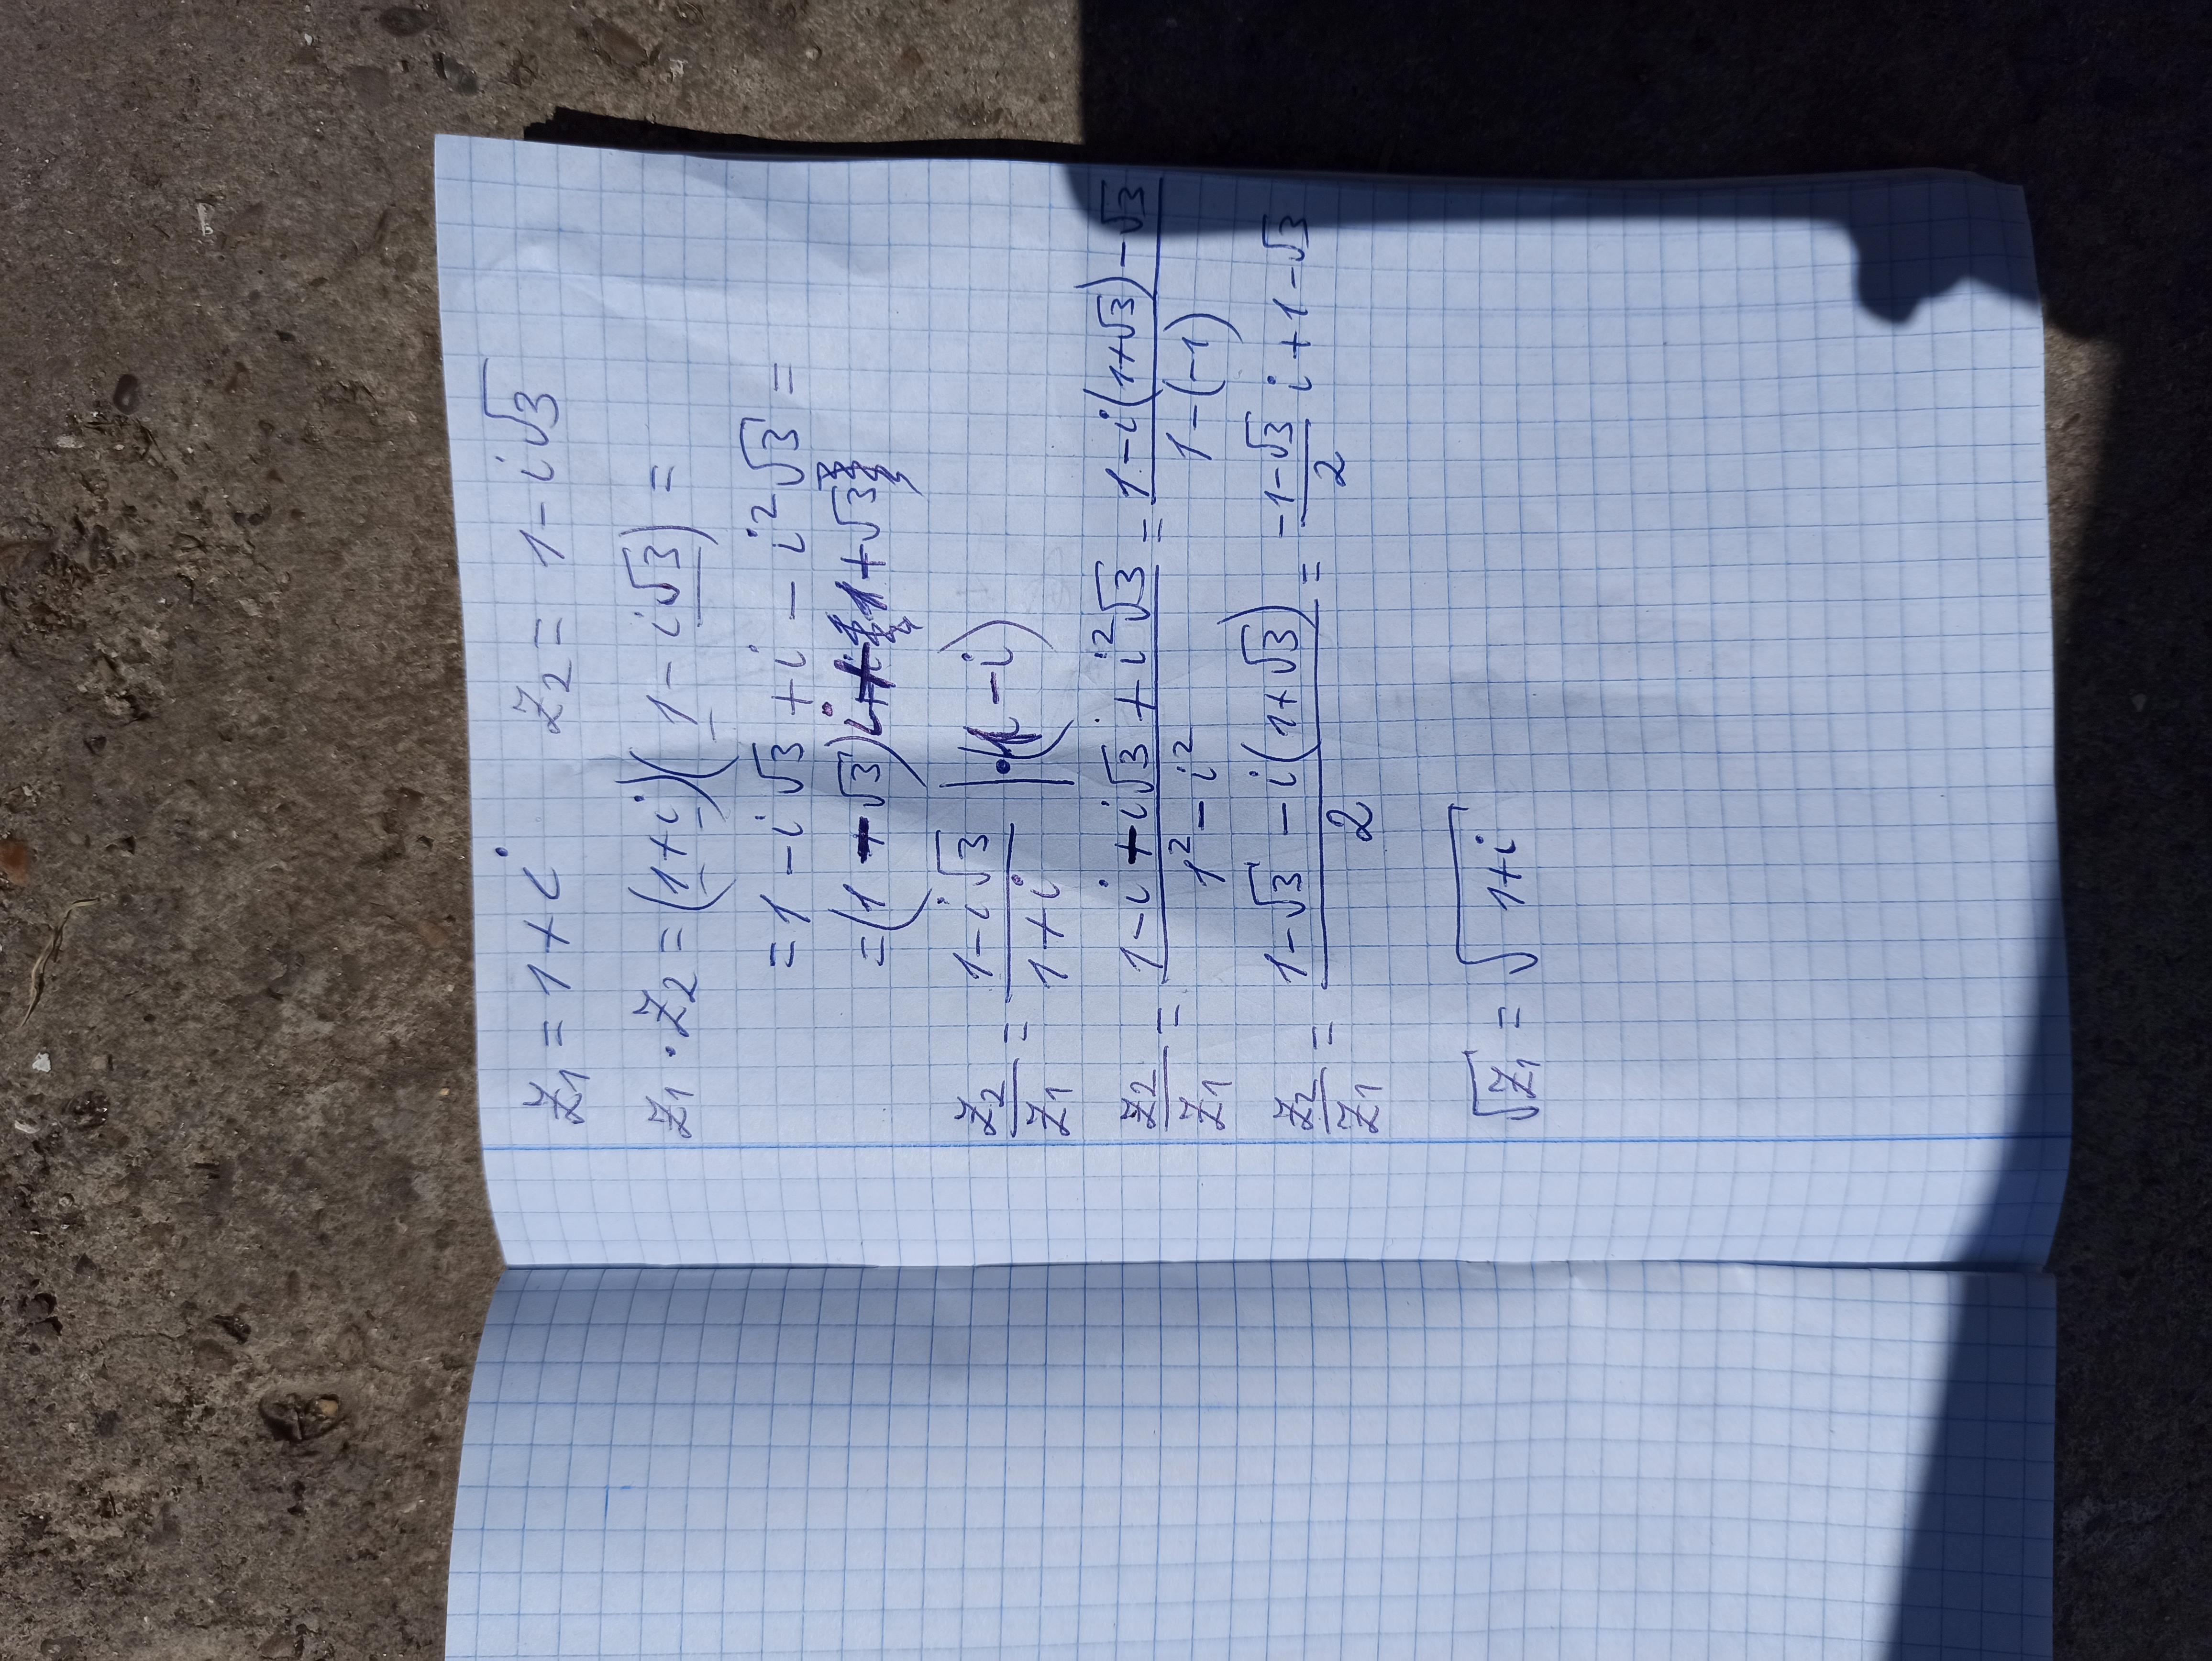 z₁ = 1 + i z₂ = 1 - i√3
z₁ · z₂ = (1+i)(1 - i√3) =
= 1 - i√3 + i - i²√3 =
= (1 - √3)i + 1 + √3
z₂/z₁ = (1-i√3)/(1+i) | · (1-i)
z₂/z₁ = (1 - i + i√3 + i²√3)/(1² - i²) = (1 - i(1+√3) - √3)/(1-(-1))
z₂/z₁ = (1-√3 - i(1+√3))/2 = (-1-√3)/2 i + 1-√3
√z₁ = √(1+i)